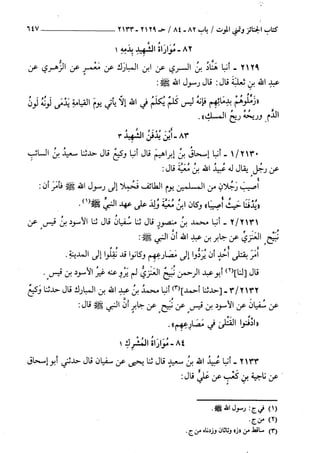 كتاب الجنائز وتمني الموت / باب ٨٢ - ٨٤ / حـ ٢١٢٩ - ٢١٣٣ ـــــــــــ ٦٤٧
٨٢ - مُوَارَاةُ الشَّهِيدِ بِدَمِهِ ١
٢١٢٩ - أنبا هَنَّادُ بنُ السري عن ابن المبارك عن مَعْمَرٍ عن الزُّهري عن
عبد الله بن ثعلبة قال: قال رسول الله ﷺ:
«زَمِّلُوهُمْ بِدِمَائِهِم فَإِنَّهُ لَيْسَ كَلْمٌ يُكْلَمُ في الله إلَّا يَأْتِي يومَ القِيامَةِ يَدْمَى لَوْنُهُ لَوْنُ
الدَّمِ وَرِيحُهُ رِيحُ المِسْكِ».
٨٣ - أَيْنَ يُدْفَنُ الشَّهِيدُ ٣
١/٢١٣٠ - أنبا إسحاقُ بنُ إبراهيمَ قال أنبا وكيعٌ قال حدثنا سعيدُ بنُ السائبِ
عن رجلٍ يقال له عُبيدُ الله بنُ مُعَيَّةَ قال:
أُصِيبَ رَجُلَانِ من المسلمين يوم الطائف فحُمِلَا إلى رسول الله ﷺ فَأَمَرَ أن:
«يُدْفَنَا حَيْثُ أُصِيبَا» وكان ابنُ مُعَيَّةَ وُلِدَ على عهد النبيِّ ﷺ(١).
٢/٢١٣١ - أنبا محمد بنُ منصورٍ قال ثنا سُفْيَانُ قال ثنا الأسودُ بنُ قيس عن
نُبَيْحٍ العَنَزِيِّ عن جابر بن عبد الله أن النبي ﷺ:
أَمَرَ بقتلى أُحُدٍ أن يُرَدُّوا إلى مَصَارِعِهم وكانوا قد نُقِلُوا إلى المدينة.
قال [لنا](٢) أبو عبد الرحمن نُبَيْحٌ العَنَزِيُّ لم يَرْوِ عنه غيرُ الأسود بن قيس.
٣/٢١٣٢ - [حدثنا أحمد](٣) أنبا محمدُ بنُ عبد الله بن المبارك قال حدثنا وكيعٌ
عن سُفْيَانَ عن الأسود بن قيس عن نُبَيْحٍ عن جابرٍ أن النبي ﷺ قال:
«ادْفِنُوا القَتْلَى في مَصَارِعِهِم».
٨٤ - مُوَارَاةُ المُشْرِكِ ١
٢١٣٣ - أنبا عُبيدُ الله بنُ سعيدٍ قال ثنا يحيى عن سفيان قال حدثني أبو إسحاق
عن ناجيةَ بنِ كَعْبٍ عن عَلِيٍّ قال:
(١) في ج: رسول الله ﷺ.
(٢) من ج.
(٣) ساقط من «ز» وثابت وزدناه من ج.